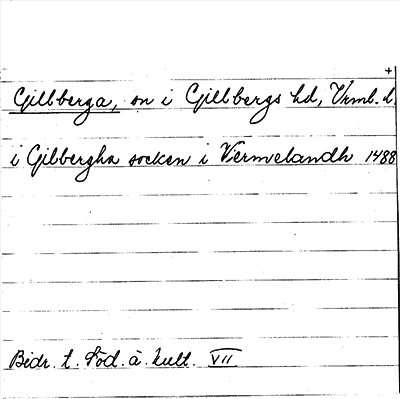 +
Gillberga, sn i Gillbergs hd, Vrml. l.
i Gilbergha socken i Vermelandh 1488
Bidr. t. Söd. å. kult. VII